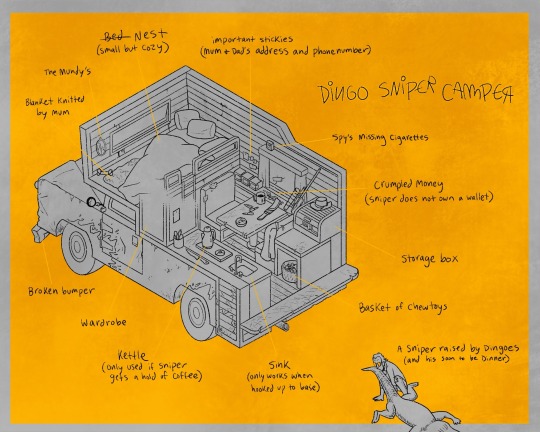 Bed Nest
(small but cozy)
important stickies
(Mum & Dad's address and phonenumber)
The Mundy's
Blanket Knitted
by Mum
DINGO SNIPER CAMPER
Spy's Missing Cigarettes
Crumpled Money
(sniper does not own a wallet)
Storage box
Broken bumper
Basket of chewtoys
Wardrobe
Kettle
(only used if sniper
gets a hold of coffee)
Sink
(only works when
hooked up to base)
A Sniper raised by Dingoes
(and his son to be Dinner)